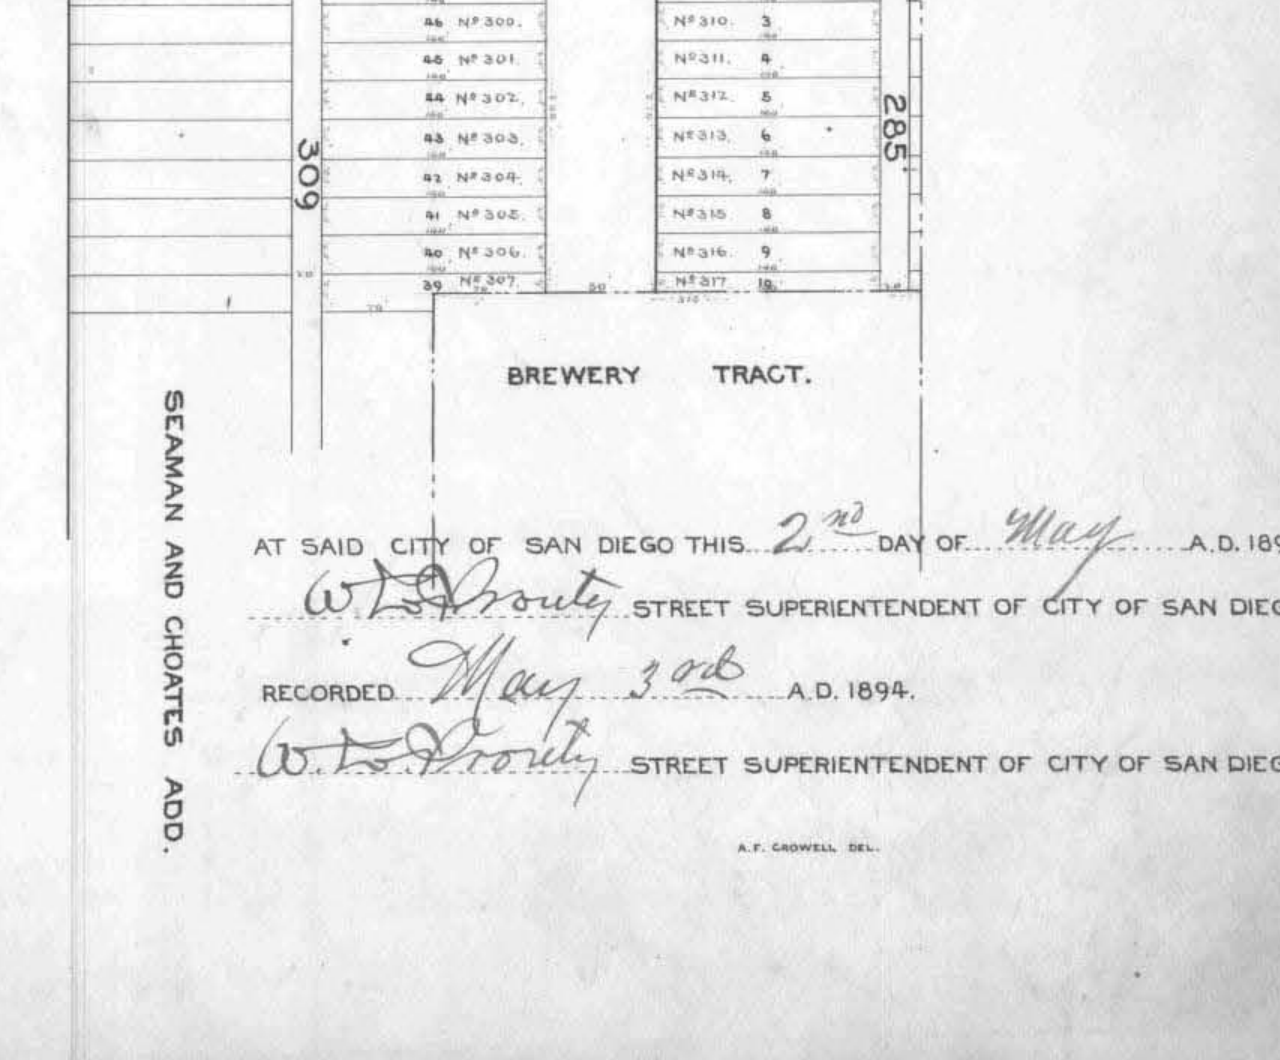 46 Nº300. Nº310. 3
45 Nº301. Nº311. 4
44 Nº302. Nº312. 5
43 Nº303. Nº313. 6
42 Nº304. Nº314. 7
41 Nº305. Nº315 8
40 Nº306. Nº316. 9
39 Nº307. Nº317 10
309
285
50
310
70
BREWERY TRACT.
SEAMAN AND CHOATES ADD.
AT SAID CITY OF SAN DIEGO THIS 2nd DAY OF May A.D. 189
W. L. Prouty STREET SUPERIENTENDENT OF CITY OF SAN DIEG
RECORDED May 3rd A.D. 1894.
W. L. Prouty STREET SUPERIENTENDENT OF CITY OF SAN DIEG
A.F. CROWELL DEL.